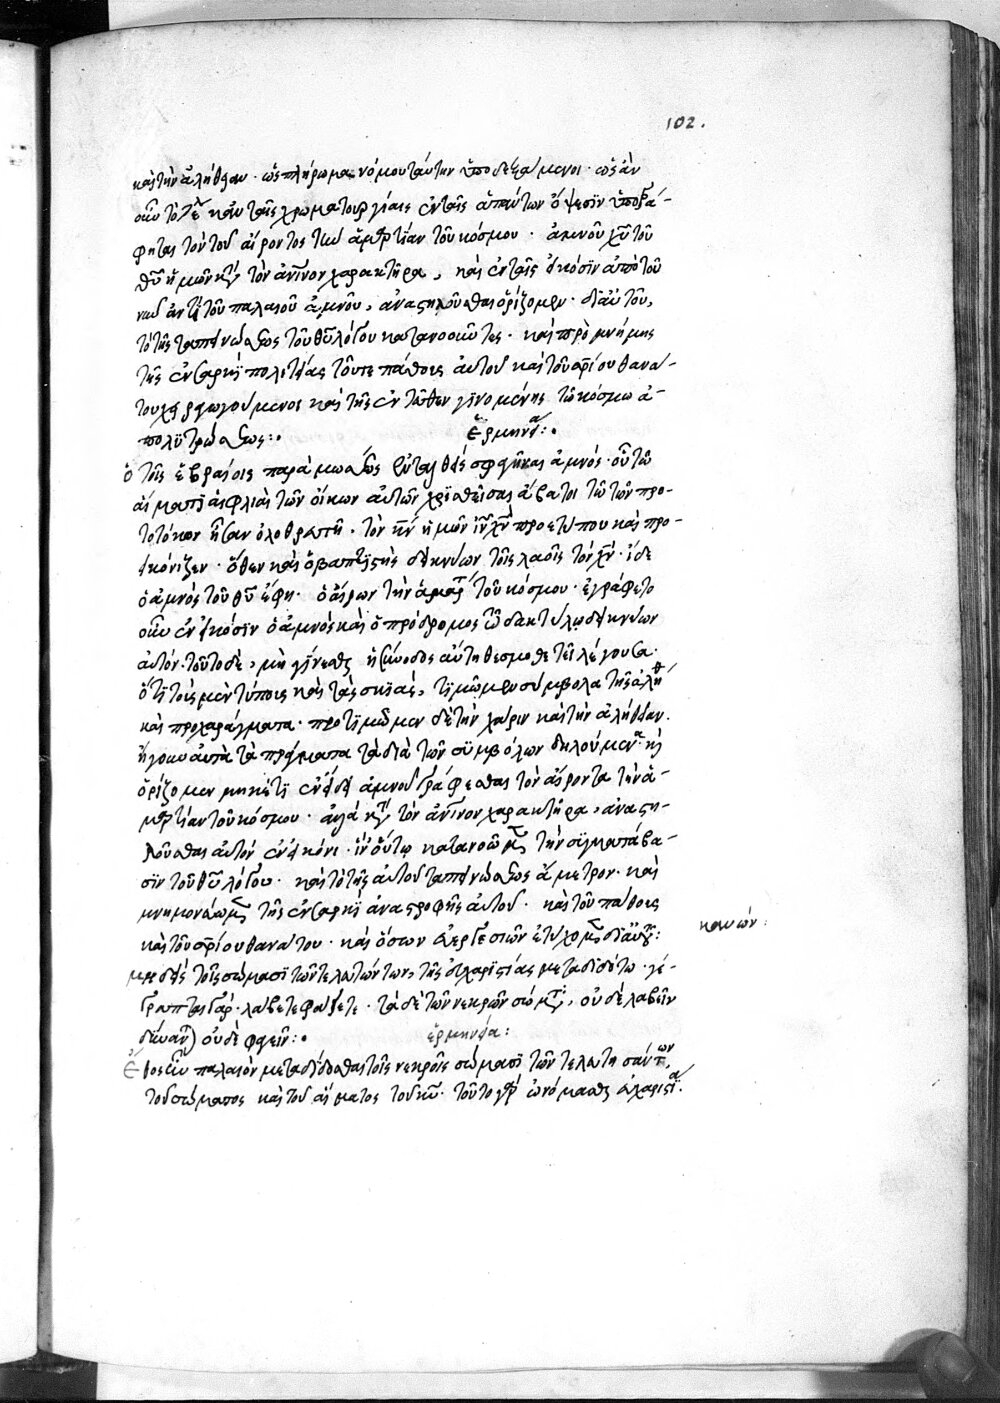 102.
καὶ τὴν ἀλήθειαν· ὡς πλήρωμα νόμου ταύτην ὑποδεξάμενοι· ὡς ἂν
οὖν τὸ τέλειον κἀν ταῖς χρωματουργίαις ἐν ταῖς ἁπάντων ὄψεσιν ὑπογρά-
φηται τὸν τοῦ αἴροντος τὴν ἁμαρτίαν τοῦ κόσμου· ἀμνοῦ χῦ τοῦ
θῦ ἡμῶν κατὰ τὸν ἀνινον χαρακτῆρα, καὶ ἐν ταῖς εἰκόσιν ἀπὸ τοῦ
νῦν ἀντὶ τοῦ παλαιοῦ ἀμνοῦ, ἀναστηλοῦσθαι ὁρίζομεν· δι αὐτοῦ,
τὸ τῆς ταπεινώσεως τοῦ θῦ λόγου κατανοοῦντες· καὶ πρὸς μνήμης
τῆς ἐν σαρκὶ πολιτείας τοῦ τε πάθους αὐτοῦ καὶ τοῦ σρίου θανά-
του χειραγωγούμενοι καὶ τῆς ἐντεῦθεν γινομένης τῶ κόσμω ἀ-
πολυτρώσεως:·
Ἑρμηνεία:·
ὁ τοῖς ἑβραίοις παραμωσέως ῥηταχθεὶς σφαγῆναι ἀμνός· οὗ τῶ
αἵματι αἱ φλιαὶ τῶν οἴκων αὐτῶν χρισθεῖσαι ἄβατοι τῶ τῶν προ-
τοτόκων ἦσαν ὀλοθρευτῆ· τὸν κν ἡμῶν ιν χν προετύπου καὶ προ-
εικόνιζεν· ὅθεν καὶ ὁ βαπτιστὴς δεικνύων τοῖς λαοῖς τὸν χν· ἴδε
ὁ ἀμνὸς τοῦ θῦ ἔφη· ὁ αἴρων τὴν ἁμαρτ τοῦ κόσμου· ἐγράφετο
οὖν ἐν εἰκόσιν ὁ ἀμνὸς καὶ ὁ πρόδρομος τῶ δακτύλω δεικνύων
αὐτόν· τοῦτο δὲ, μὴ γίνεσθαι ἡ σύνοδος αὕτη θεσμοθετεῖ λέγουσα·
ὅτι τοὺς μὲν τύπους καὶ τὰς σκιὰς, τιμῶμεν σύμβολα τῆς ἀληθ
καὶ προχαράγματα· προτιμῶμεν δὲ τὴν χάριν καὶ τὴν ἀλήθειαν·
ἤγουν αὐτὰ τὰ πράγματα τὰ διὰ τῶν συμβόλων δηλούμενα· καὶ
ὁρίζομεν μηκέτι ἐν εἴδει ἀμνοῦ γράφεσθαι τὸν αἴροντα τὴν ἁ-
μαρτίαν τοῦ κόσμου· ἀλλὰ κατὰ τὸν ἀνινον χαρακτῆρα, ἀναστη-
λοῦσθαι αὐτὸν ἐν εἰκόνι· ἵν οὕτω κατανοῶμεν τὴν συγκατάβα-
σιν τοῦ θῦ λόγου· καὶ τὸ τῆς αὐτοῦ ταπεινώσεως ἄμετρον· καὶ
μνημονεύωμεν τῆς ἐν σαρκὶ ἀναστροφῆς αὐτοῦ· καὶ τοῦ πάθους
καὶ τοῦ σρίου θανάτου· καὶ ὅσων εὐεργεσιῶν ἐτύχομεν δι αὐτοῦ:
κανών:
μηδεὶς τοῖς σώμασι τῶν τελευτώντων, τῆς εὐχαριστίας μεταδιδότω· γέ-
γραπται γάρ· λάβετε φάγετε· τὰ δὲ τῶν νεκρῶν σώματα, οὐδὲ λαβεῖν
δύναν οὐδὲ φαγεῖν:·
ἑρμηνεία:
Ἔθος ἦν παλαιὸν μεταδίδοσθαι τοῖς νεκροῖς σώμασι τῶν τελευτησάντων,
τοῦ σώματος καὶ τοῦ αἵματος τοῦ κῦ· τοῦτο γὰρ ὠνόμασται εὐχαριστία·